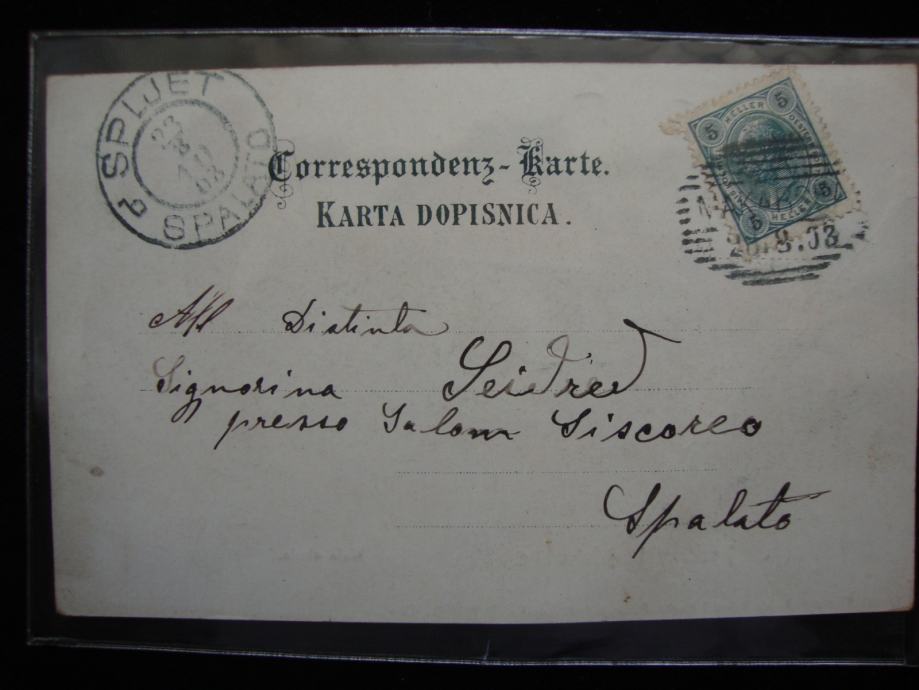 SPLJET
23
8
10
03
SPALATO
Correspondenz-Karte.
KARTA DOPISNICA.
5 HELLER 5
5 HELLER 5
8.03
All Distinta
Signorina Seidred
presso Salom Siscoreo
Spalato